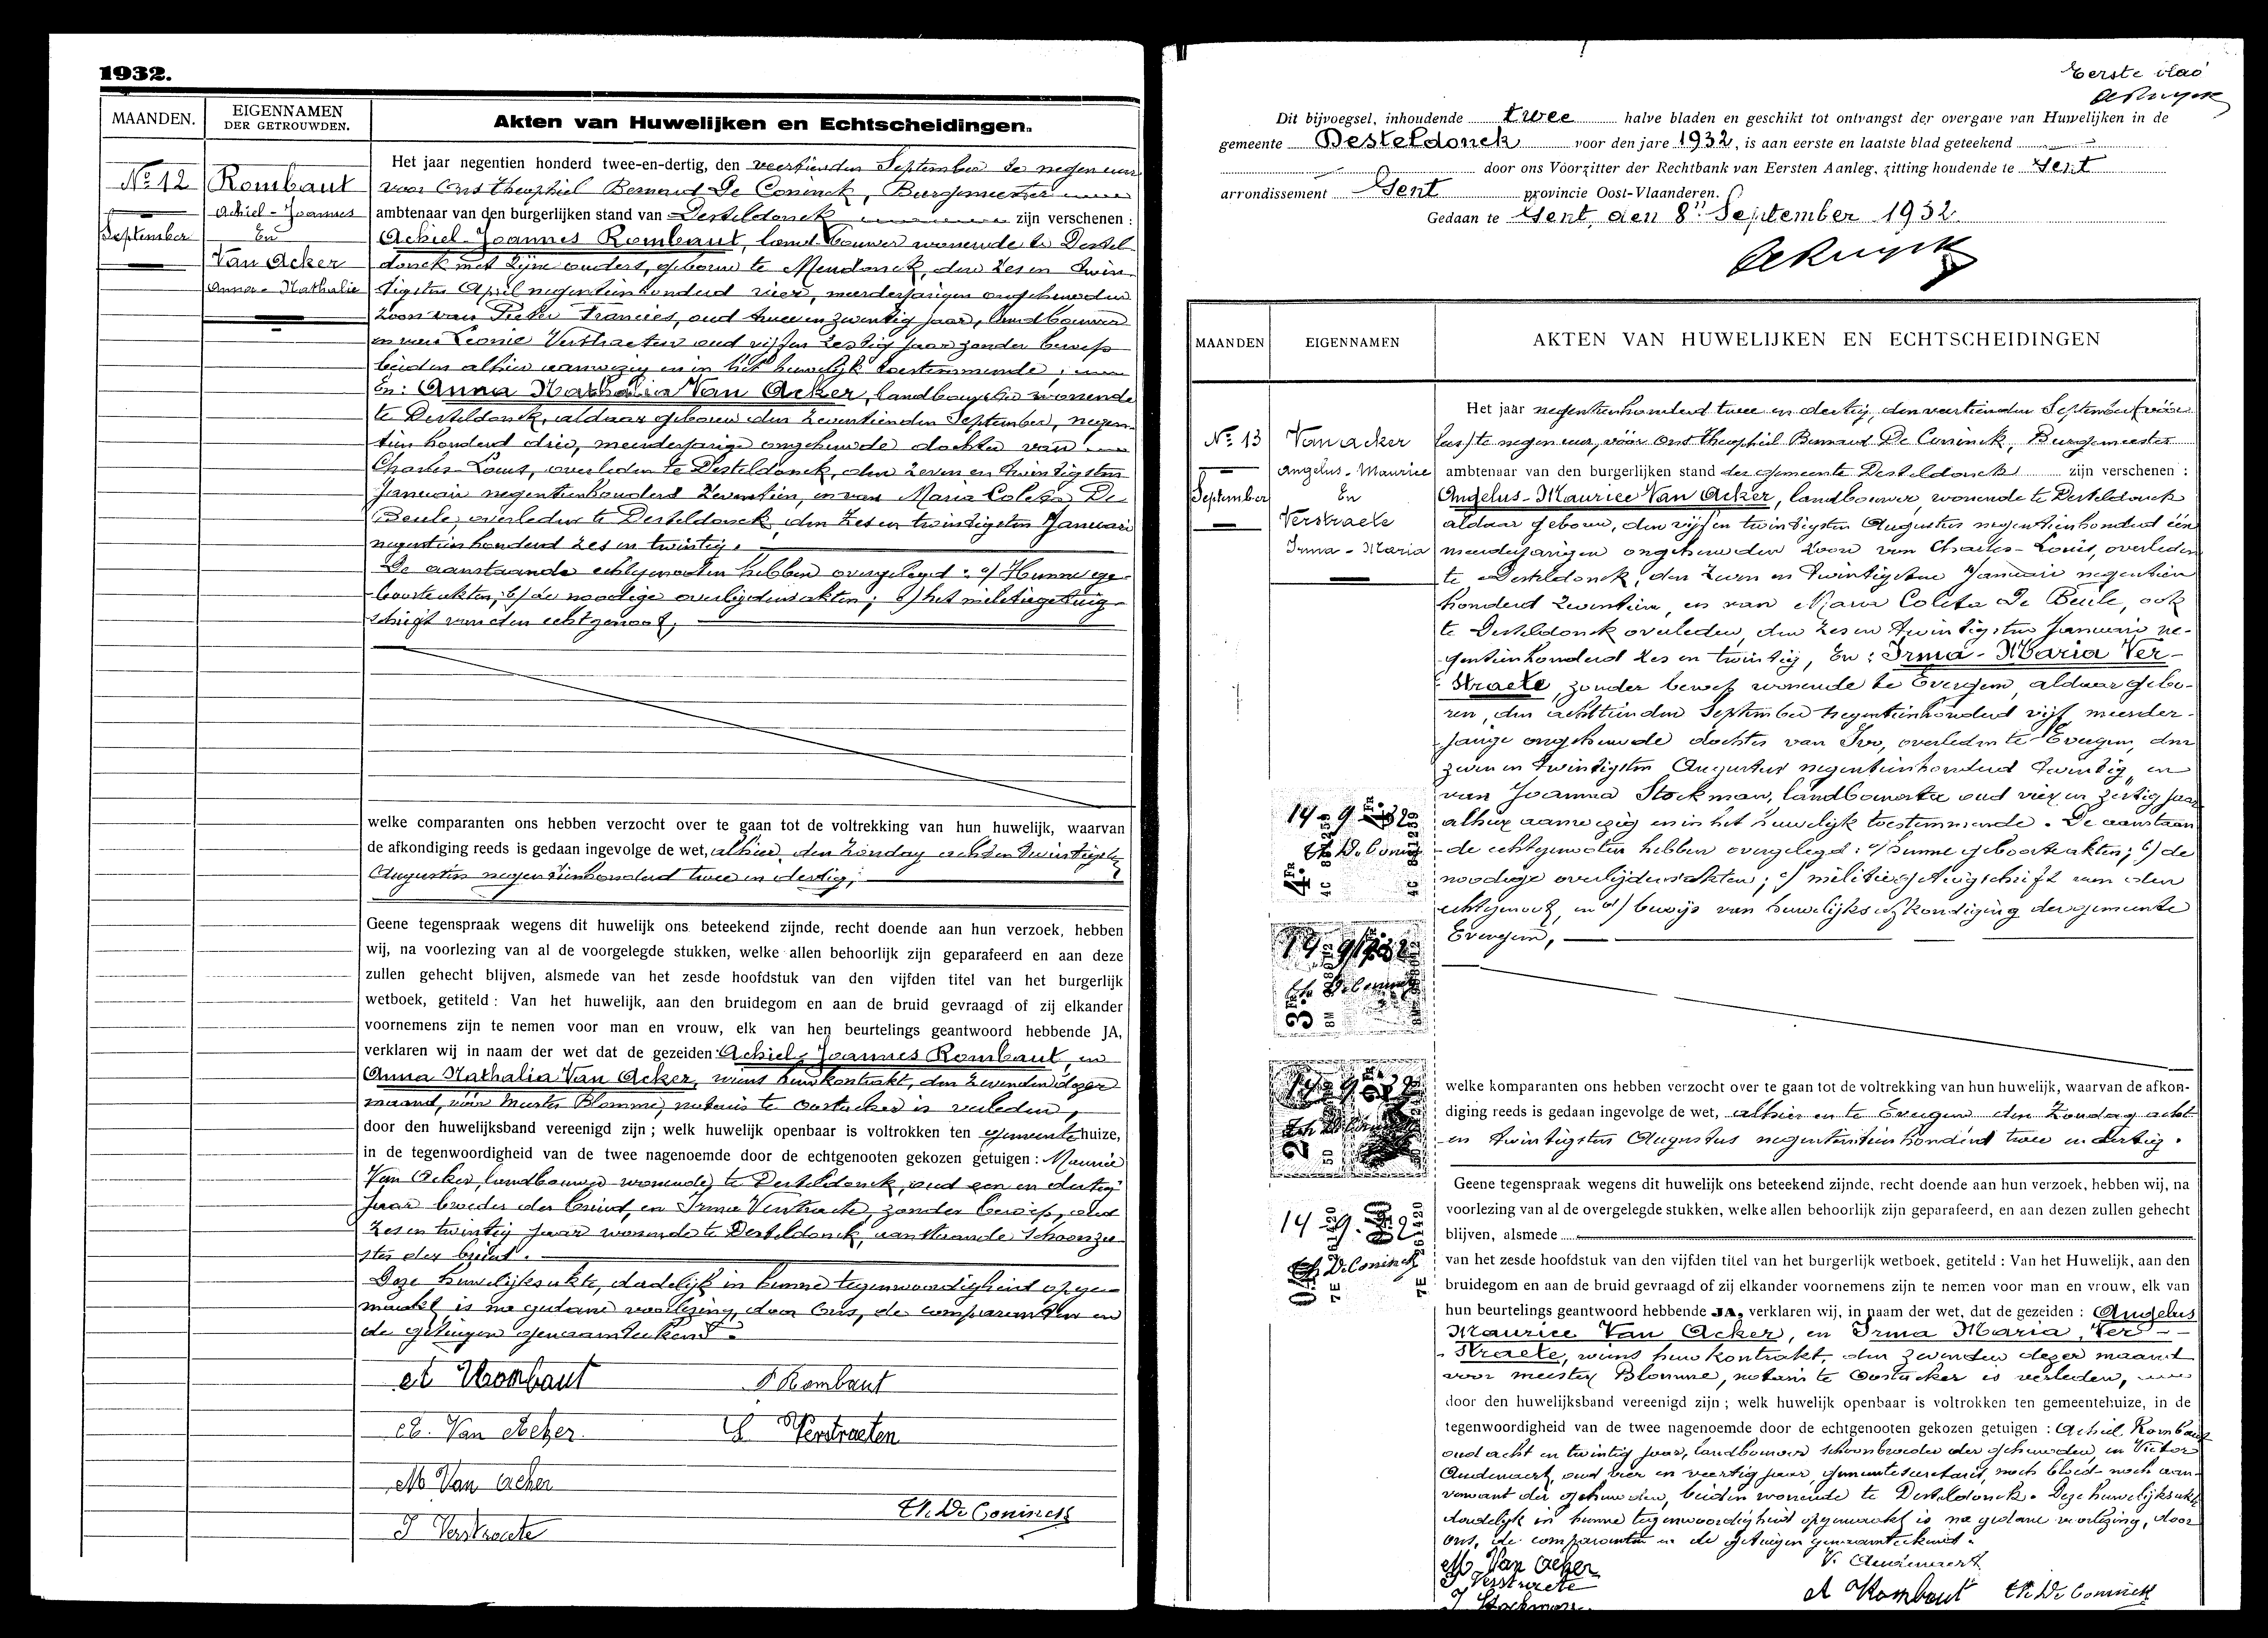 1932.
MAANDEN.
EIGENNAMEN
DER GETROUWDEN.
Akten van Huwelijken en Echtscheidingen.
No 12
September
Rombaut
Achiel-Joannes
En
Van Acker
Anna-Nathalie
Het jaar negentien honderd twee-en-dertig, den veertienden September te negen uur
voor Ons Theophiel Bernard De Coninck, Burgemeester
ambtenaar van den burgerlijken stand van Desteldonck zijn verschenen :
Achiel-Joannes Rombaut, landbouwer wonende te Destel-
donck met zijne ouders, geboren te Mendonck, den zes en twin-
tigsten April negentienhonderd vier, meerderjarigen ongehuwden
zoon van Pieter Francies, oud twee en zeventig jaar, landbouwer
en van Leonie Verstraeten oud vijf en zestig jaar zonder beroep
beiden alhier aanwezig en in het huwelijk toestemmende;
En: Anna Nathalia Van Acker, landbouwster wonende
te Desteldonck, aldaar geboren den zeventienden September, negen-
tien honderd drie, meerderjarige ongehuwde dochter van
Charles-Louis, overleden te Desteldonck, den zeven en twintigsten
Januari negentienhonderd zeventien, en van Maria Coleta De
Beule, overleden te Desteldonck, den zes en twintigsten Januari
negentien honderd zes en twintig.
De aanstaande echtgenooten hebben overgelegd : a/ Hunne ge-
boorteakten; b/ de noodige overlijdensakten; c/ het militiegetuig-
schrift van den echtgenoot;
welke comparanten ons hebben verzocht over te gaan tot de voltrekking van hun huwelijk, waarvan
de afkondiging reeds is gedaan ingevolge de wet, alhier, den Zondag acht en twintigsten
Augustus negentienhonderd twee en dertig;
Geene tegenspraak wegens dit huwelijk ons beteekend zijnde, recht doende aan hun verzoek, hebben
wij, na voorlezing van al de voorgelegde stukken, welke allen behoorlijk zijn geparafeerd en aan deze
zullen gehecht blijven, alsmede van het zesde hoofdstuk van den vijfden titel van het burgerlijk
wetboek, getiteld : Van het huwelijk, aan den bruidegom en aan de bruid gevraagd of zij elkander
voornemens zijn te nemen voor man en vrouw, elk van hen beurtelings geantwoord hebbende JA,
verklaren wij in naam der wet dat de gezeiden Achiel-Joannes Rombaut, en
Anna Nathalia Van Acker, wiens huwkontrakt, den zevenden dezer
maand, vóór Meester Blomme, notaris te Oostacker is verleden,
door den huwelijksband vereenigd zijn ; welk huwelijk openbaar is voltrokken ten gemeentehuize,
in de tegenwoordigheid van de twee nagenoemde door de echtgenooten gekozen getuigen : Maurice
Van Acker, landbouwer wonende te Desteldonck, oud een en dertig
jaar broeder der bruid, en Irma Verstraete, zonder beroep, oud
zes en twintig jaar wonende te Desteldonck, aanstaande schoonzu-
ster der bruid.
Deze huwelijksakte, dadelijk in hunne tegenwoordigheid opge-
maakt is na gedane voorlezing, door Ons, de comparanten en
de getuigen genaamteekend.
A Rombaut
P Rombaut
A. Van Acker
L Verstraeten
M Van Acker
Th. De Coninck
I Verstraete
Eerste blad
Dit bijvoegsel, inhoudende twee halve bladen en geschikt tot ontvangst der overgave van Huwelijken in de
gemeente Desteldonck voor den jare 1932, is aan eerste en laatste blad geteekend
door ons Voorzitter der Rechtbank van Eersten Aanleg, zitting houdende te Gent
arrondissement Gent provincie Oost-Vlaanderen.
Gedaan te Gent, den 8n September 1932
MAANDEN
EIGENNAMEN
AKTEN VAN HUWELIJKEN EN ECHTSCHEIDINGEN
No 13
September
Van Acker
Angelus-Maurice
En
Verstraete
Irma-Maria
Het jaar negentienhonderd twee en dertig, den veertienden September
te negen uur, vóór Ons Theophiel Bernard De Coninck, Burgemeester
ambtenaar van den burgerlijken stand der gemeente Desteldonck zijn verschenen :
Angelus-Maurice Van Acker, landbouwer, wonende te Desteldonck
aldaar geboren, den vijf en twintigsten Augustus negentienhonderd één
meerderjarigen ongehuwden zoon van Charles-Louis, overleden
te Desteldonck, den zeven en twintigsten Januari negentien
honderd zeventien, en van Maria Coleta De Beule, ook
te Desteldonck overleden, den zes en twintigsten Januari ne-
gentienhonderd zes en twintig, En : Irma-Maria Ver-
straete, zonder beroep wonende te Evergem, aldaar gebo-
ren, den achttienden September negentienhonderd vijf, meerder-
jarige ongehuwde dochter van Ivo, overleden te Evergem, den
zeven en twintigsten Augustus negentienhonderd twintig, en
van Joanna Stockman, landbouwster oud vier en zestig jaar
alhier aanwezig en in het huwelijk toestemmende. De aanstaan-
de echtgenooten hebben overgelegd : a/ hunne geboorteakten; b/ de
noodige overlijdensakten; c/ militiegetuigschrift van den
echtgenoot, en d/ bewijs van huwelijksafkondiging der gemeente
Evergem,
14-9-32
Th De Coninck
14-9-32
Th De Coninck
14-9-32
14-9-32
Th De Coninck
welke komparanten ons hebben verzocht over te gaan tot de voltrekking van hun huwelijk, waarvan de afkon-
diging reeds is gedaan ingevolge de wet, alhier en te Evergem den Zondag acht
en twintigsten Augustus negentienhonderd twee en dertig.
Geene tegenspraak wegens dit huwelijk ons beteekend zijnde, recht doende aan hun verzoek, hebben wij, na
voorlezing van al de overgelegde stukken, welke allen behoorlijk zijn geparafeerd, en aan dezen zullen gehecht
blijven, alsmede
van het zesde hoofdstuk van den vijfden titel van het burgerlijk wetboek, getiteld : Van het Huwelijk, aan den
bruidegom en aan de bruid gevraagd of zij elkander voornemens zijn te nemen voor man en vrouw, elk van
hun beurtelings geantwoord hebbende JA, verklaren wij, in naam der wet, dat de gezeiden : Angelus
Maurice Van Acker, en Irma Maria Ver-
straete, wiens huwkontrakt, den zevenden dezer maand
voor meester Blomme, notaris te Oostacker is verleden,
door den huwelijksband vereenigd zijn ; welk huwelijk openbaar is voltrokken ten gemeentehuize, in de
tegenwoordigheid van de twee nagenoemde door de echtgenooten gekozen getuigen : Achiel Rombaut
oud acht en twintig jaar, landbouwer schoonbroeder der gehuwden, en Victor
Audenaert, oud vier en veertig jaar, gemeentesecretaris, noch bloed- noch aan-
verwant der gehuwden, beiden wonende te Desteldonck. Deze huwelijksakte
dadelijk in hunne tegenwoordigheid opgemaakt is na gedane voorlezing, door
ons, de comparanten en de getuigen genaamteekend.
M Van Acker
V. Audenaert
I Verstraete
A Rombaut
Th. De Coninck
J Stockman